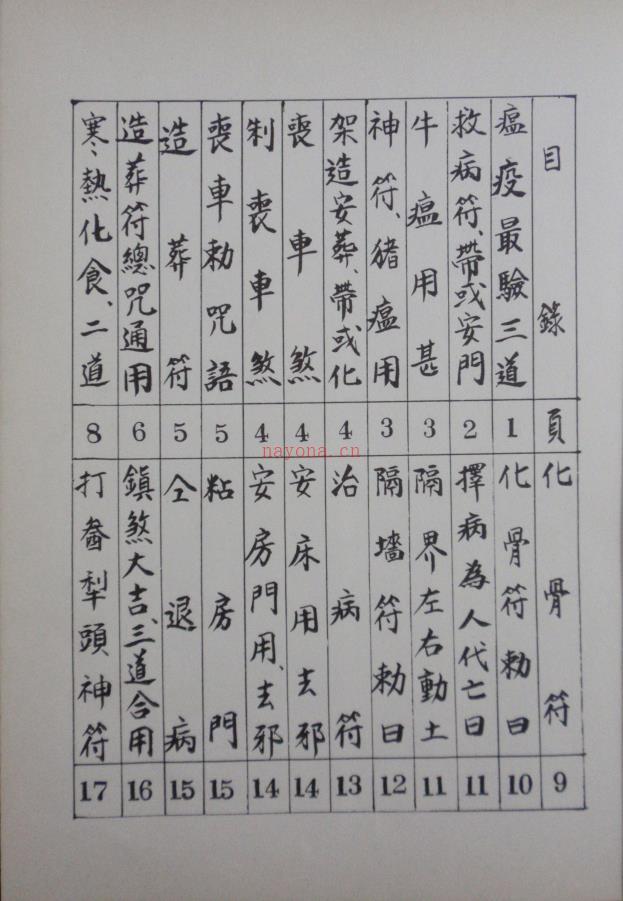 目錄 頁
瘟疫最驗三道 1
救病符、帶或安門 2
牛瘟用甚 3
神符、猪瘟用 3
架造安葬、帶或化 4
喪車煞 4
制喪車煞 4
喪車勅咒語 5
造葬符 5
造葬符總咒通用 6
寒、熱化食、二道 8
化骨符 9
化骨符勅曰 10
擇病為人代亡曰 11
隔界左右動土 11
隔墻符勅曰 12
治病符 13
安床用去邪 14
安房門用、去邪 14
粘房門 15
仝退病 15
鎮煞大吉、三道合用 16
打犁頭神符 17
nayona.cn